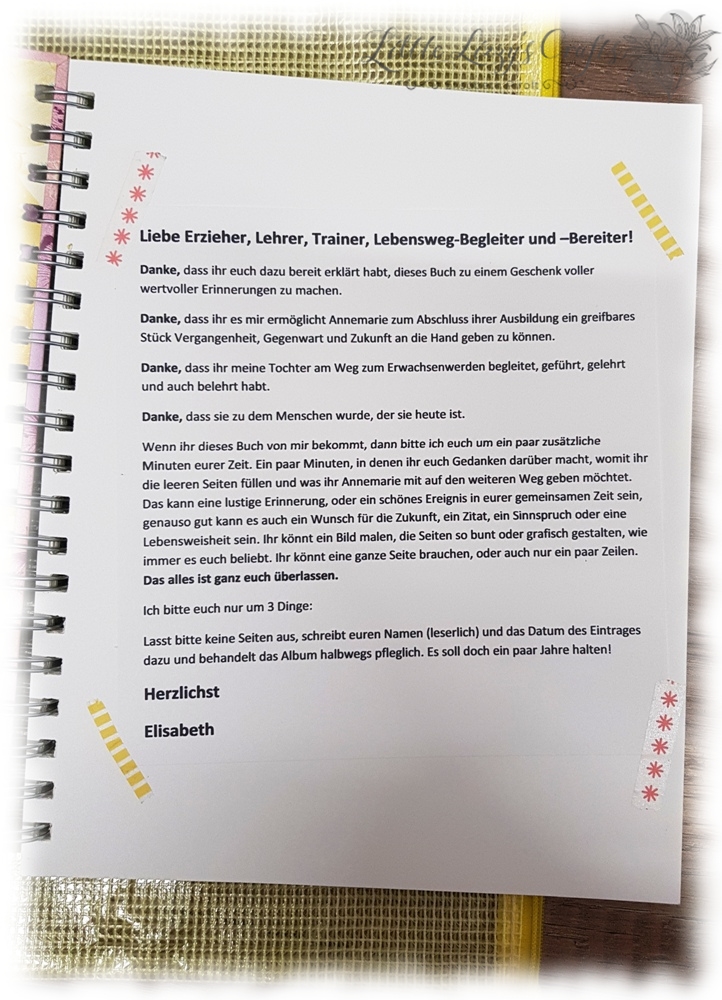 Little Lizzy's Crafts
Liebe Erzieher, Lehrer, Trainer, Lebensweg-Begleiter und –Bereiter!
Danke, dass ihr euch dazu bereit erklärt habt, dieses Buch zu einem Geschenk voller
wertvoller Erinnerungen zu machen.
Danke, dass ihr es mir ermöglicht Annemarie zum Abschluss ihrer Ausbildung ein greifbares
Stück Vergangenheit, Gegenwart und Zukunft an die Hand geben zu können.
Danke, dass ihr meine Tochter am Weg zum Erwachsenwerden begleitet, geführt, gelehrt
und auch belehrt habt.
Danke, dass sie zu dem Menschen wurde, der sie heute ist.
Wenn ihr dieses Buch von mir bekommt, dann bitte ich euch um ein paar zusätzliche
Minuten eurer Zeit. Ein paar Minuten, in denen ihr euch Gedanken darüber macht, womit ihr
die leeren Seiten füllen und was ihr Annemarie mit auf den weiteren Weg geben möchtet.
Das kann eine lustige Erinnerung, oder ein schönes Ereignis in eurer gemeinsamen Zeit sein,
genauso gut kann es auch ein Wunsch für die Zukunft, ein Zitat, ein Sinnspruch oder eine
Lebensweisheit sein. Ihr könnt ein Bild malen, die Seiten so bunt oder grafisch gestalten, wie
immer es euch beliebt. Ihr könnt eine ganze Seite brauchen, oder auch nur ein paar Zeilen.
Das alles ist ganz euch überlassen.
Ich bitte euch nur um 3 Dinge:
Lasst bitte keine Seiten aus, schreibt euren Namen (leserlich) und das Datum des Eintrages
dazu und behandelt das Album halbwegs pfleglich. Es soll doch ein paar Jahre halten!
Herzlichst
Elisabeth